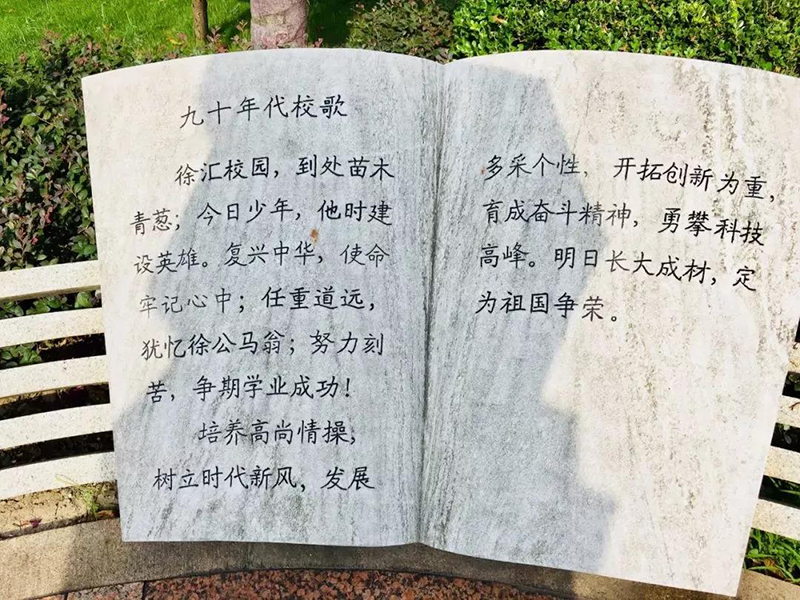 九十年代校歌
徐汇校园，到处苗木
青葱；今日少年，他时建
设英雄。复兴中华，使命
牢记心中；任重道远，
犹忆徐公马翁；努力刻
苦，争期学业成功！
培养高尚情操，
树立时代新风，发展
多采个性，开拓创新为重，
育成奋斗精神，勇攀科技
高峰。明日长大成材，定
为祖国争荣。